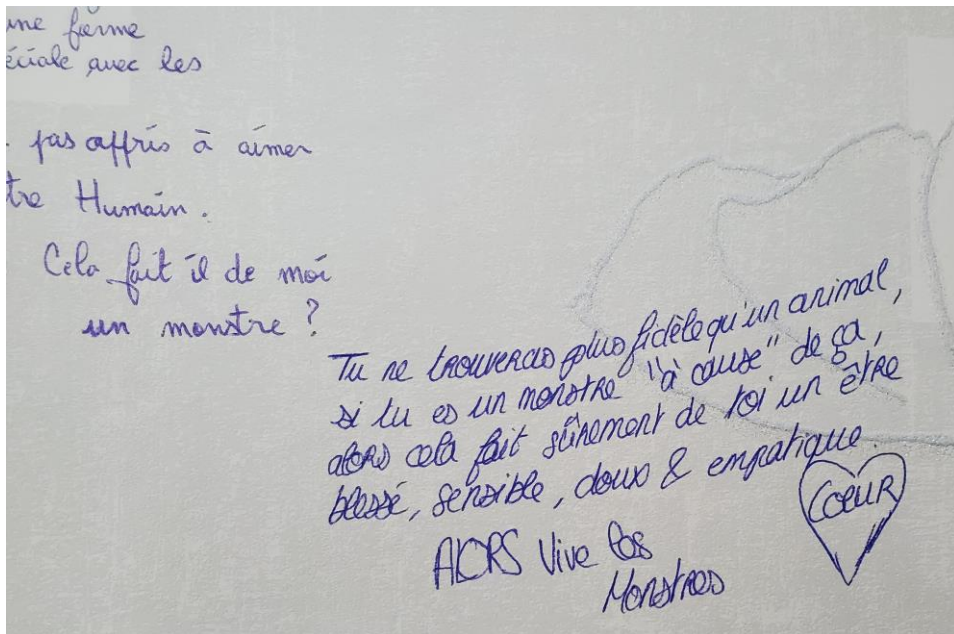 une forme
éciale avec les
pas appris à aimer
tre Humain.
Cela fait il de moi
un monstre ?
Tu ne trouveras plus fidèle qu'un animal,
si tu es un monstre "à cause" de ça,
alors cela fait sûrement de toi un être
blessé, sensible, doux & empatique.
COEUR
ALORS Vive les
Monstres